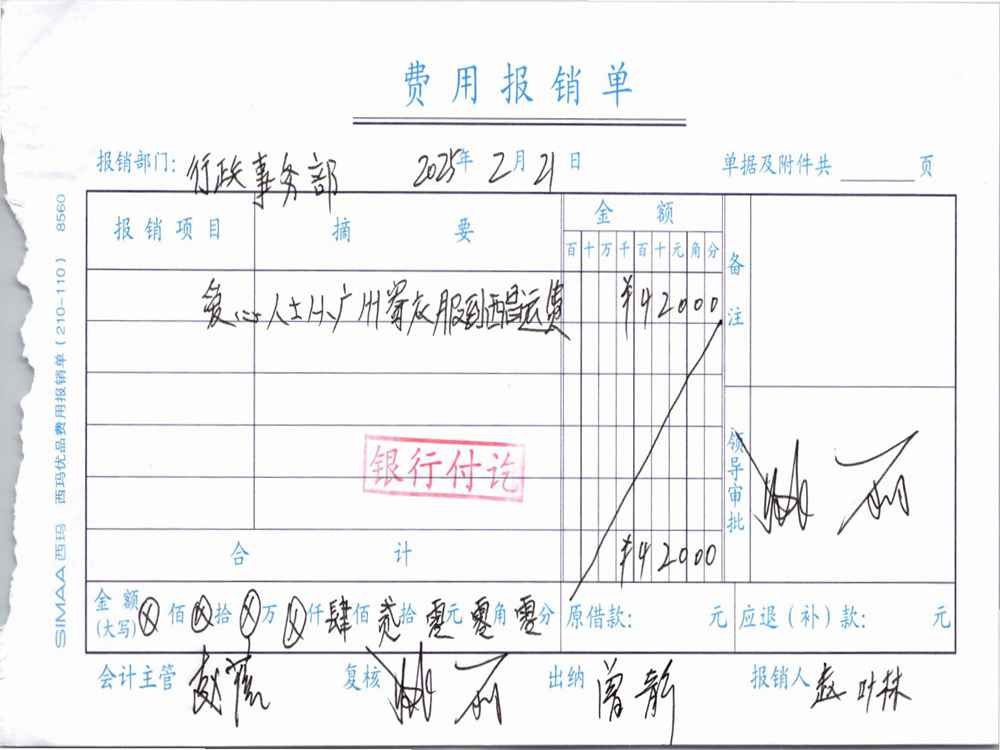 费用报销单
报销部门: 行政事务部 2025年 2月 21日 单据及附件共 页
报销项目 摘要 金额 备注
百十万千百十元角分
爱心人士从广州寄衣服到西昌运费 ¥42000
银行付讫
领导审批
合计 ¥42000
金额(大写) ⊗佰⊗拾⊗万⊗仟肆佰贰拾零元零角零分 原借款: 元 应退(补)款: 元
会计主管 复核 出纳 曾 报销人 赵叶林
SIMAA西玛 西玛优品费用报销单(210-110) 8560